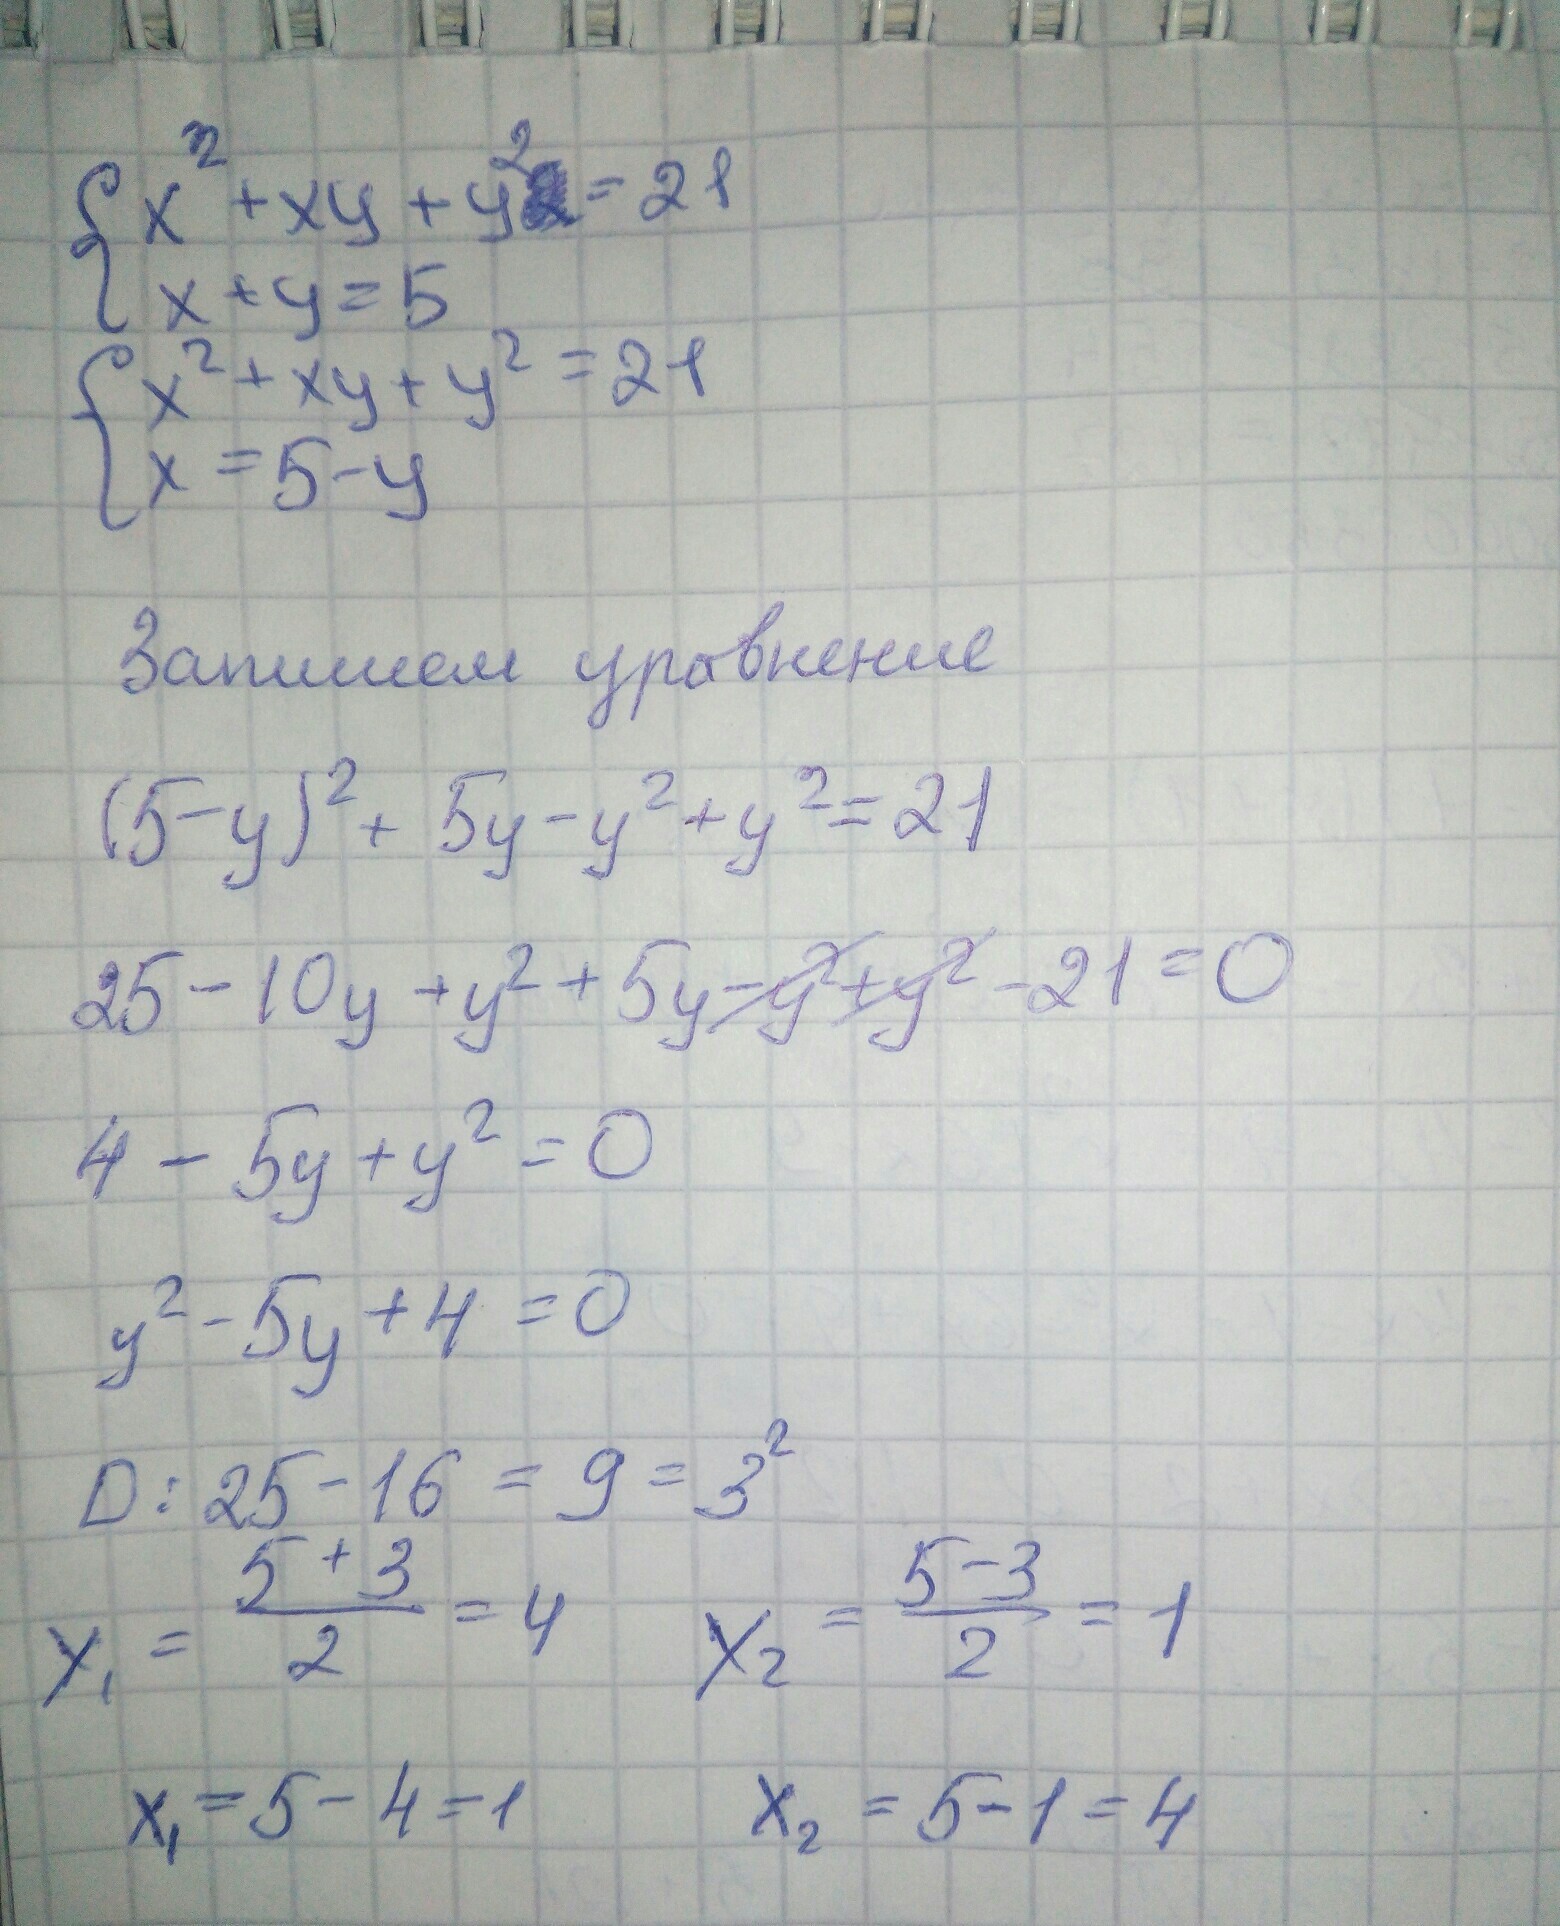 { x² + xy + y² = 21
x + y = 5
{ x² + xy + y² = 21
x = 5 - y
Запишем уравнение
(5 - y)² + 5y - y² + y² = 21
25 - 10y + y² + 5y - y² + y² - 21 = 0
4 - 5y + y² = 0
y² - 5y + 4 = 0
D: 25 - 16 = 9 = 3²
y₁ = (5 + 3)/2 = 4 y₂ = (5 - 3)/2 = 1
x₁ = 5 - 4 = 1 x₂ = 5 - 1 = 4